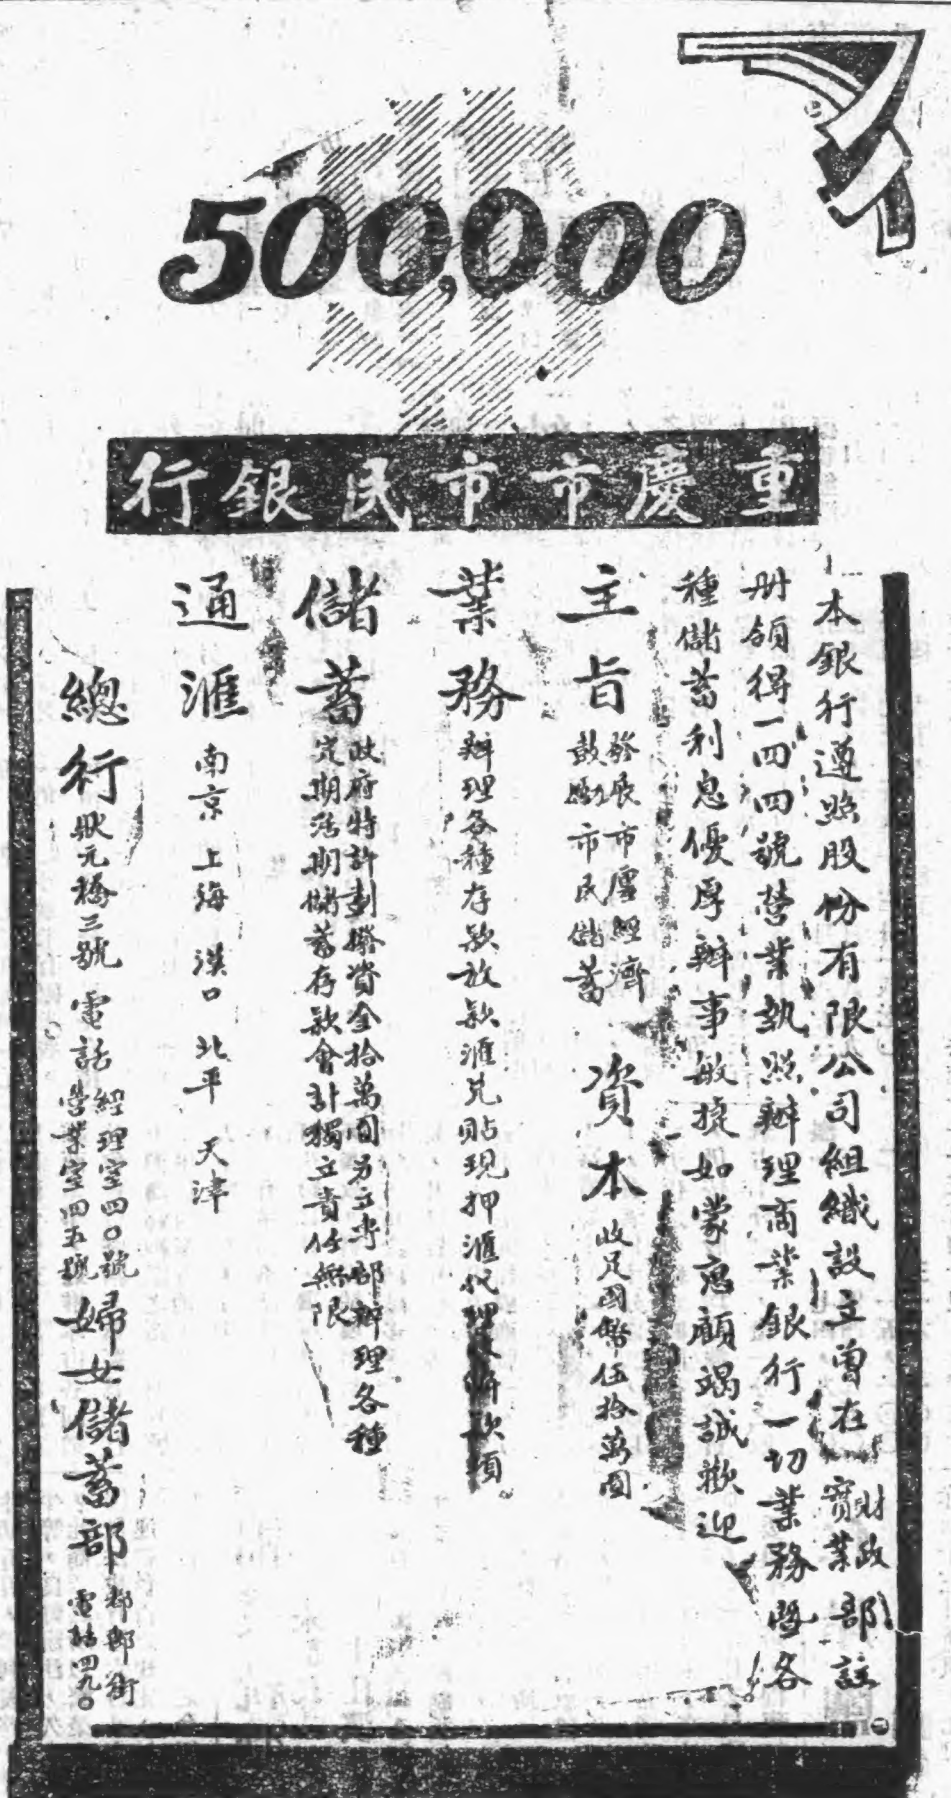 500,000
重慶市市民銀行
本銀行遵照股份有限公司組織設立曾在財政實業部註
册領得一四四號營業執照辦理商業銀行一切業務暨各
種儲蓄利息優厚辦事敏捷如蒙惠顧竭誠歡迎
主旨 發展市廛經濟
鼓勵市民儲蓄
資本 收足國幣伍拾萬圓
業務 辦理各種存款放款滙兌貼現押滙代理收解款項。
儲蓄 政府特許劃撥資金拾萬圓另立專部辦理各種
定期活期儲蓄存款會計獨立責任無限
通滙 南京 上海 漢口 北平 天津
總行 狀元橋三號 電話 經理室四〇號
營業室四五號
婦女儲蓄部 都郵街
電話四九〇